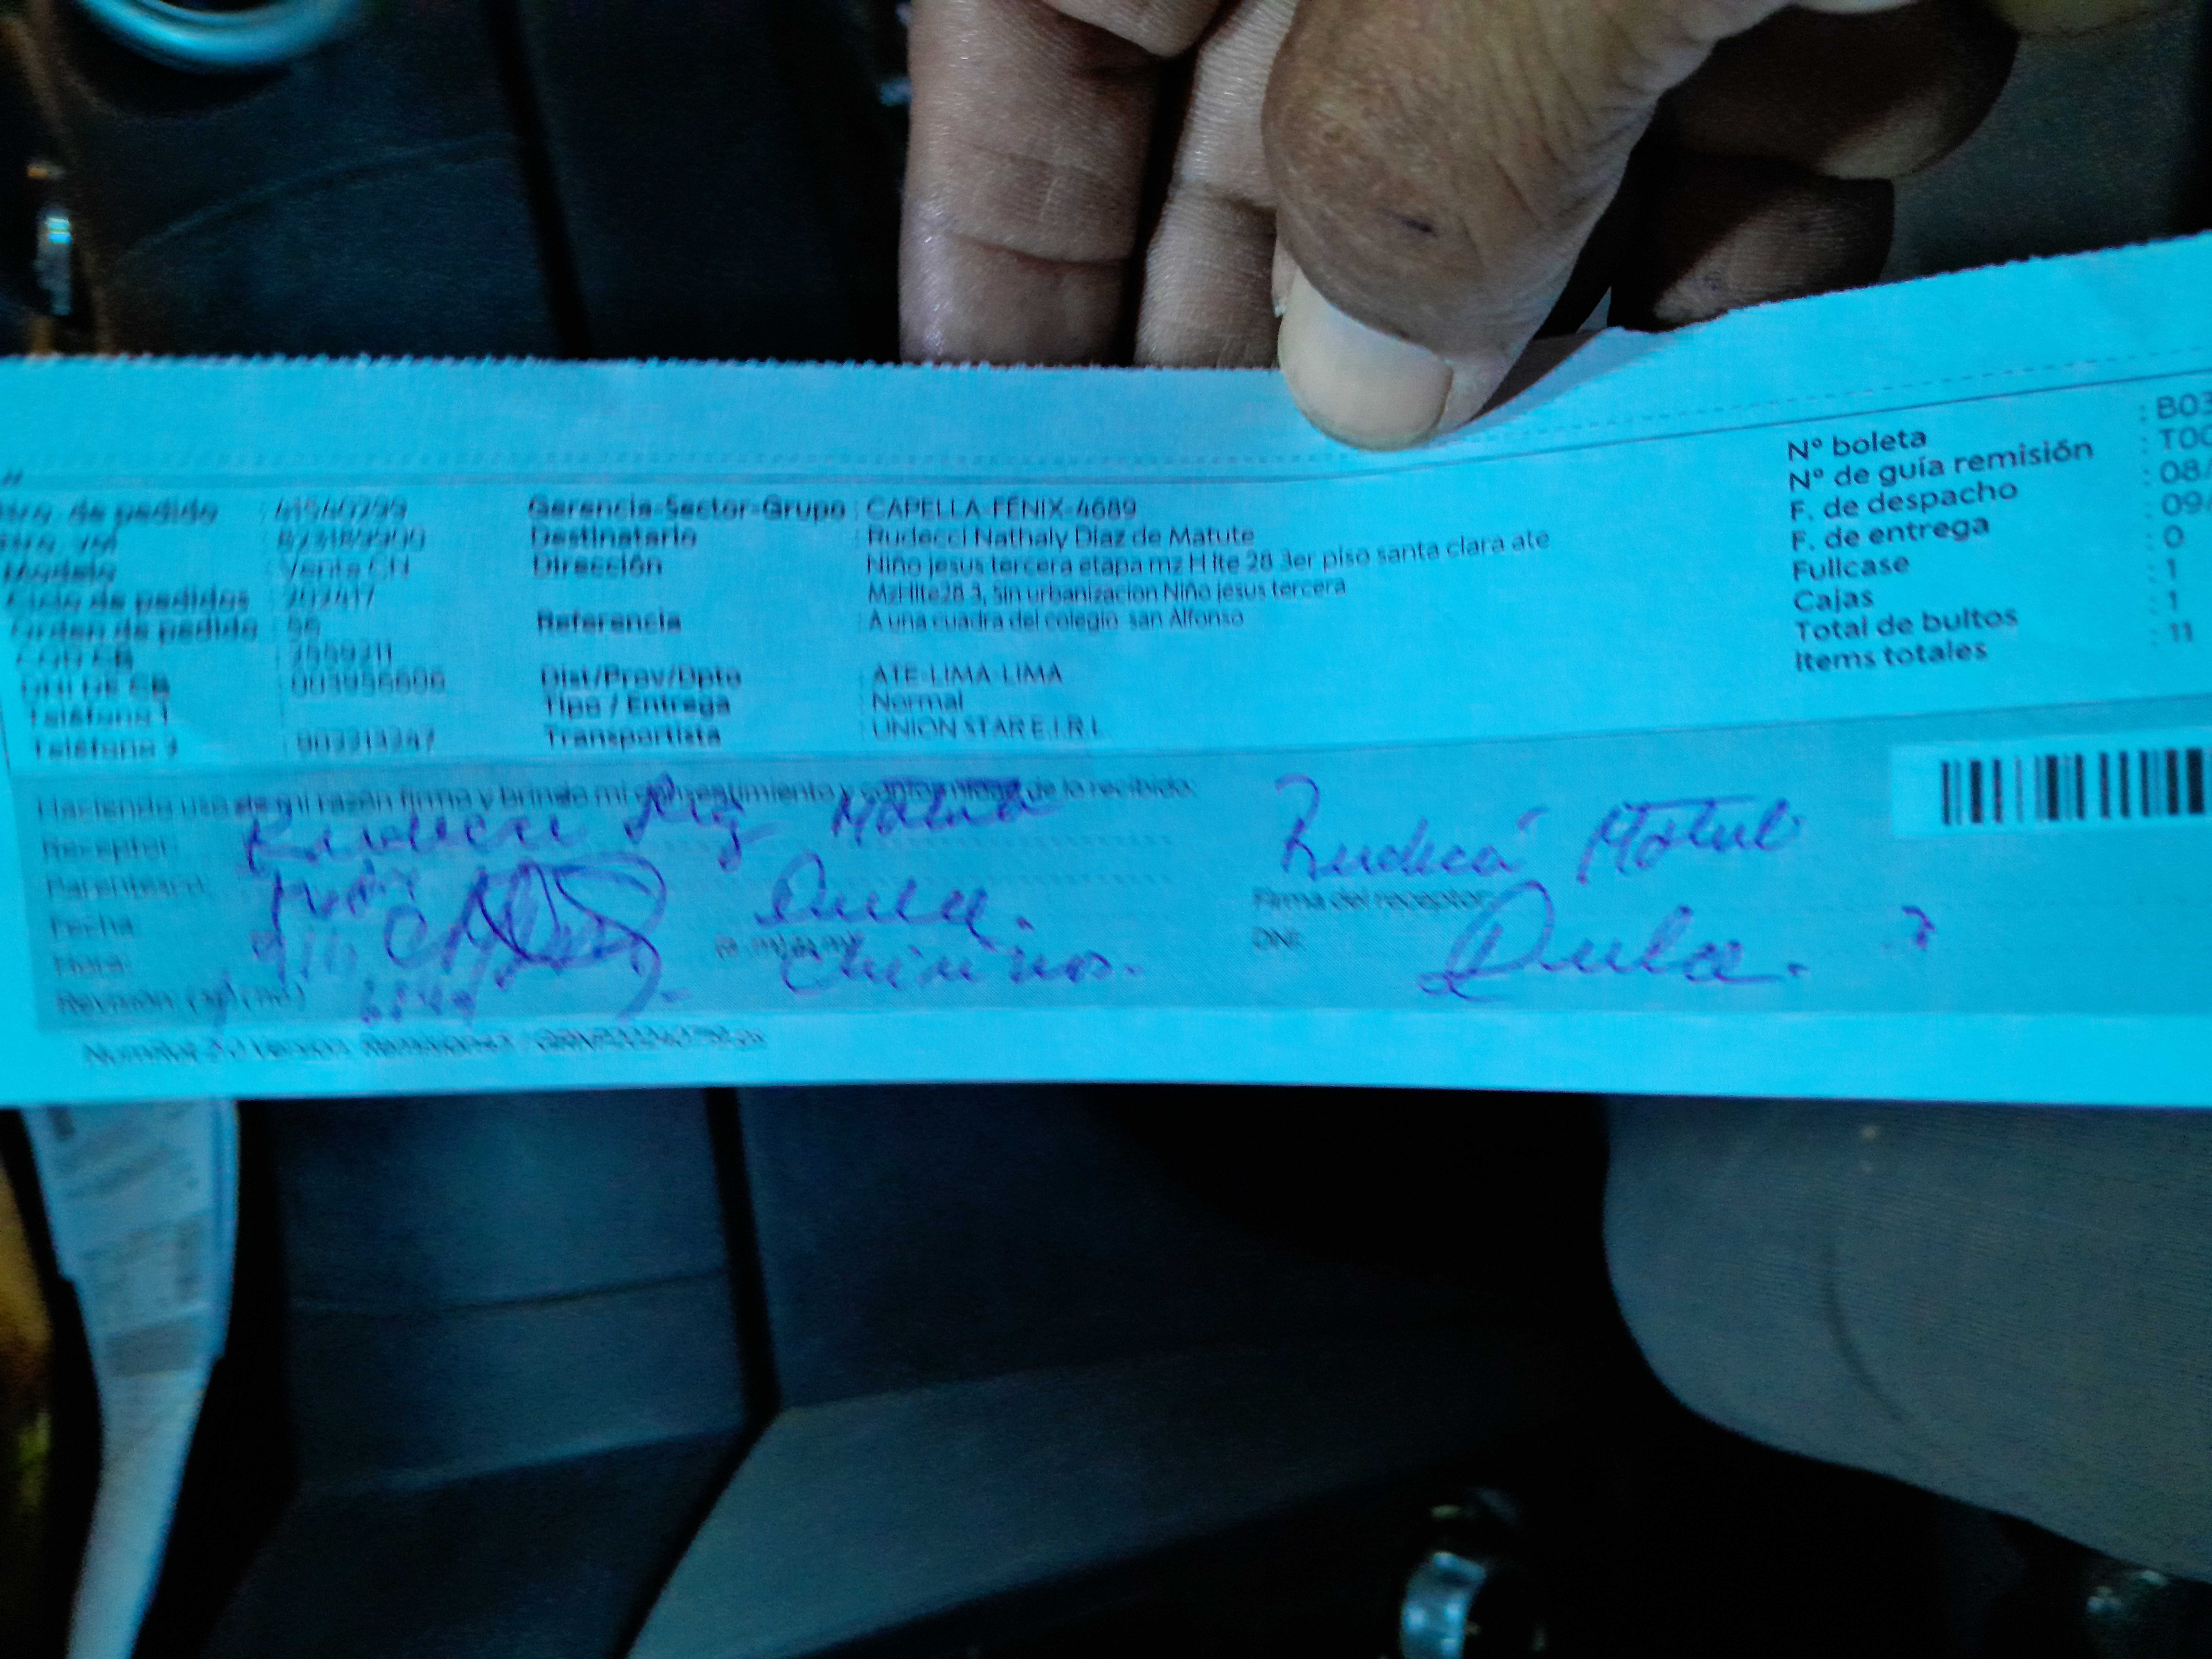 Nro. de pedido : 41540299
Modelo : Venta CN
Ciclo de pedidos : 202417
Orden de pedido : 56
COD CB : 3559311
DNI DE CB : 003956606
Teléfono 1 :
Teléfono 2 : 903313247
Gerencia-Sector-Grupo : CAPELLA-FÉNIX-4689
Destinatario : Rudecci Nathaly Diaz de Matute
Dirección : Niño jesus tercera etapa mz H lte 28 3er piso santa clara ate
MzHlte28 3, Sin urbanizacion Niño jesus tercera
Referencia : A una cuadra del colegio san Alfonso
Dist/Prov/Dpto : ATE-LIMA-LIMA
Tipo / Entrega : Normal
Transportista : UNION STAR E.I.R.L
Nº boleta : B03
Nº de guía remisión : T00
F. de despacho : 08/
F. de entrega : 09/
Fullcase : 0
Cajas : 1
Total de bultos : 1
Items totales : 11
Haciendo uso de mi razón firmo y brindo mi consentimiento y conformidad de lo recibido:
Receptor: Rudecci Matute
Parentesco:
Fecha:
Hora:
Dulce.
Chirinos.
Matute
Firma del receptor:
DNI:
Dulce.